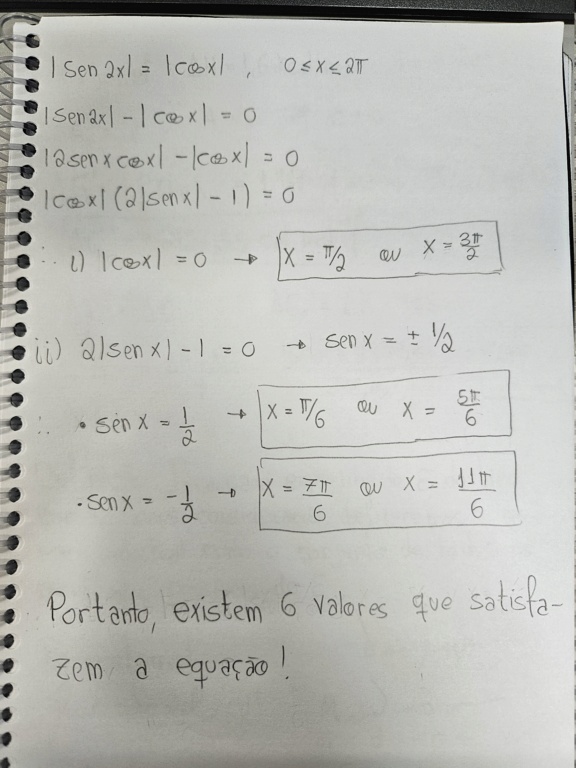 |sen 2x| = |cos x| , 0 ≤ x ≤ 2π
|sen 2x| - |cos x| = 0
|2sen x cos x| - |cos x| = 0
|cos x| (2|sen x| - 1) = 0
∴ i) |cos x| = 0 → x = π/2 ou x = 3π/2
ii) 2|sen x| - 1 = 0 → sen x = ± 1/2
∴ • sen x = 1/2 → x = π/6 ou x = 5π/6
• sen x = -1/2 → x = 7π/6 ou x = 11π/6
Portanto, existem 6 valores que satisfa-
zem a equação!